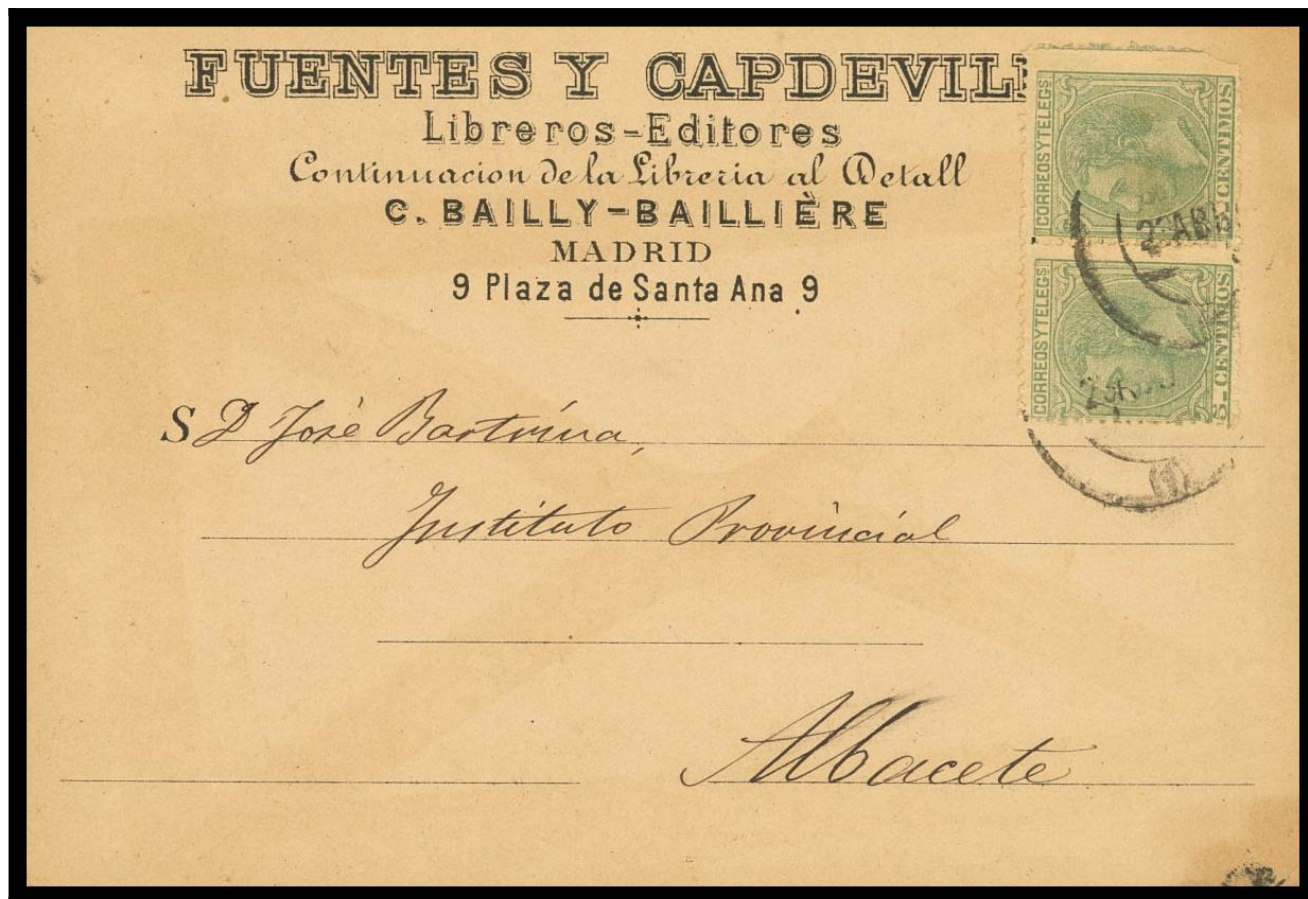 FUENTES Y CAPDEVIL
Libreros-Editores
Continuacion de la Libreria al Detall
C. BAILLY-BAILLIÈRE
MADRID
9 Plaza de Santa Ana 9
CORREOS Y TELEGS
5 CENTIMOS
CORREOS Y TELEGS
5 CENTIMOS
S D José Bartrina,
Instituto Provincial
Albacete